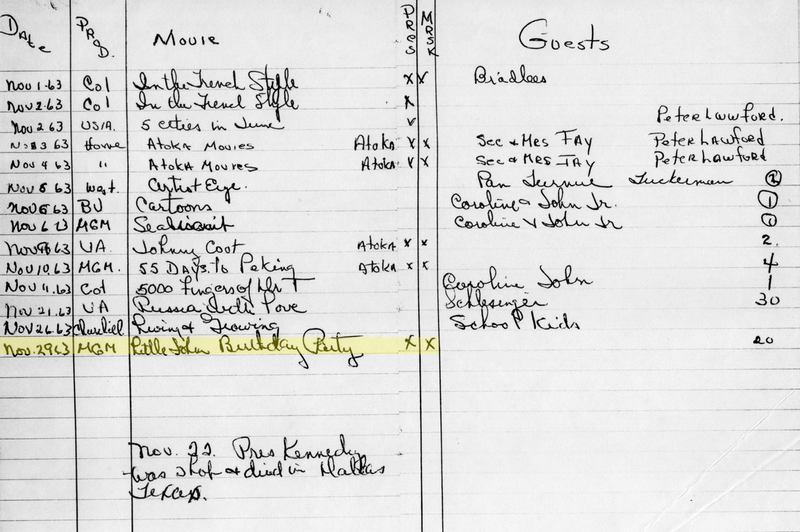 Date PRD. Movie PRES MRSK Guests
Nov 1-63 Col In the French Style X X Bradlees
Nov 2-63 Col In the French Style X
Nov 2 63 USIA. 5 cities in June Peter Lawford.
Nov 3 63 Home Atoka Movies Atoka X X Sec & Mrs Fay Peter Lawford
Nov 4 63 " Atoka Movies Atoka X X Sec & Mrs Fay Peter Lawford
Nov 5 63 Artist Eye. Pam Turnure Tuckerman 2
Nov 5 63 BV Cartoons Caroline & John Jr. 1
Nov 6 63 MGM Seabiscuit Caroline & John Jr. 1
63 UA. Johnny Coot Atoka X X 2.
Nov 10, 63 MGM. 55 Days To Peking Atoka X X 4
63 Col 5000 Fingers of Dr T Caroline John 1
Nov 21, 63 UA Russia with Love Schlesinger 30
Nov 26, 63 Living & Growing School Kids
Nov. 29 63 MGM Little John Birthday Party X X 20
Nov. 22. Pres Kennedy
was shot & died in Dallas
Texas.